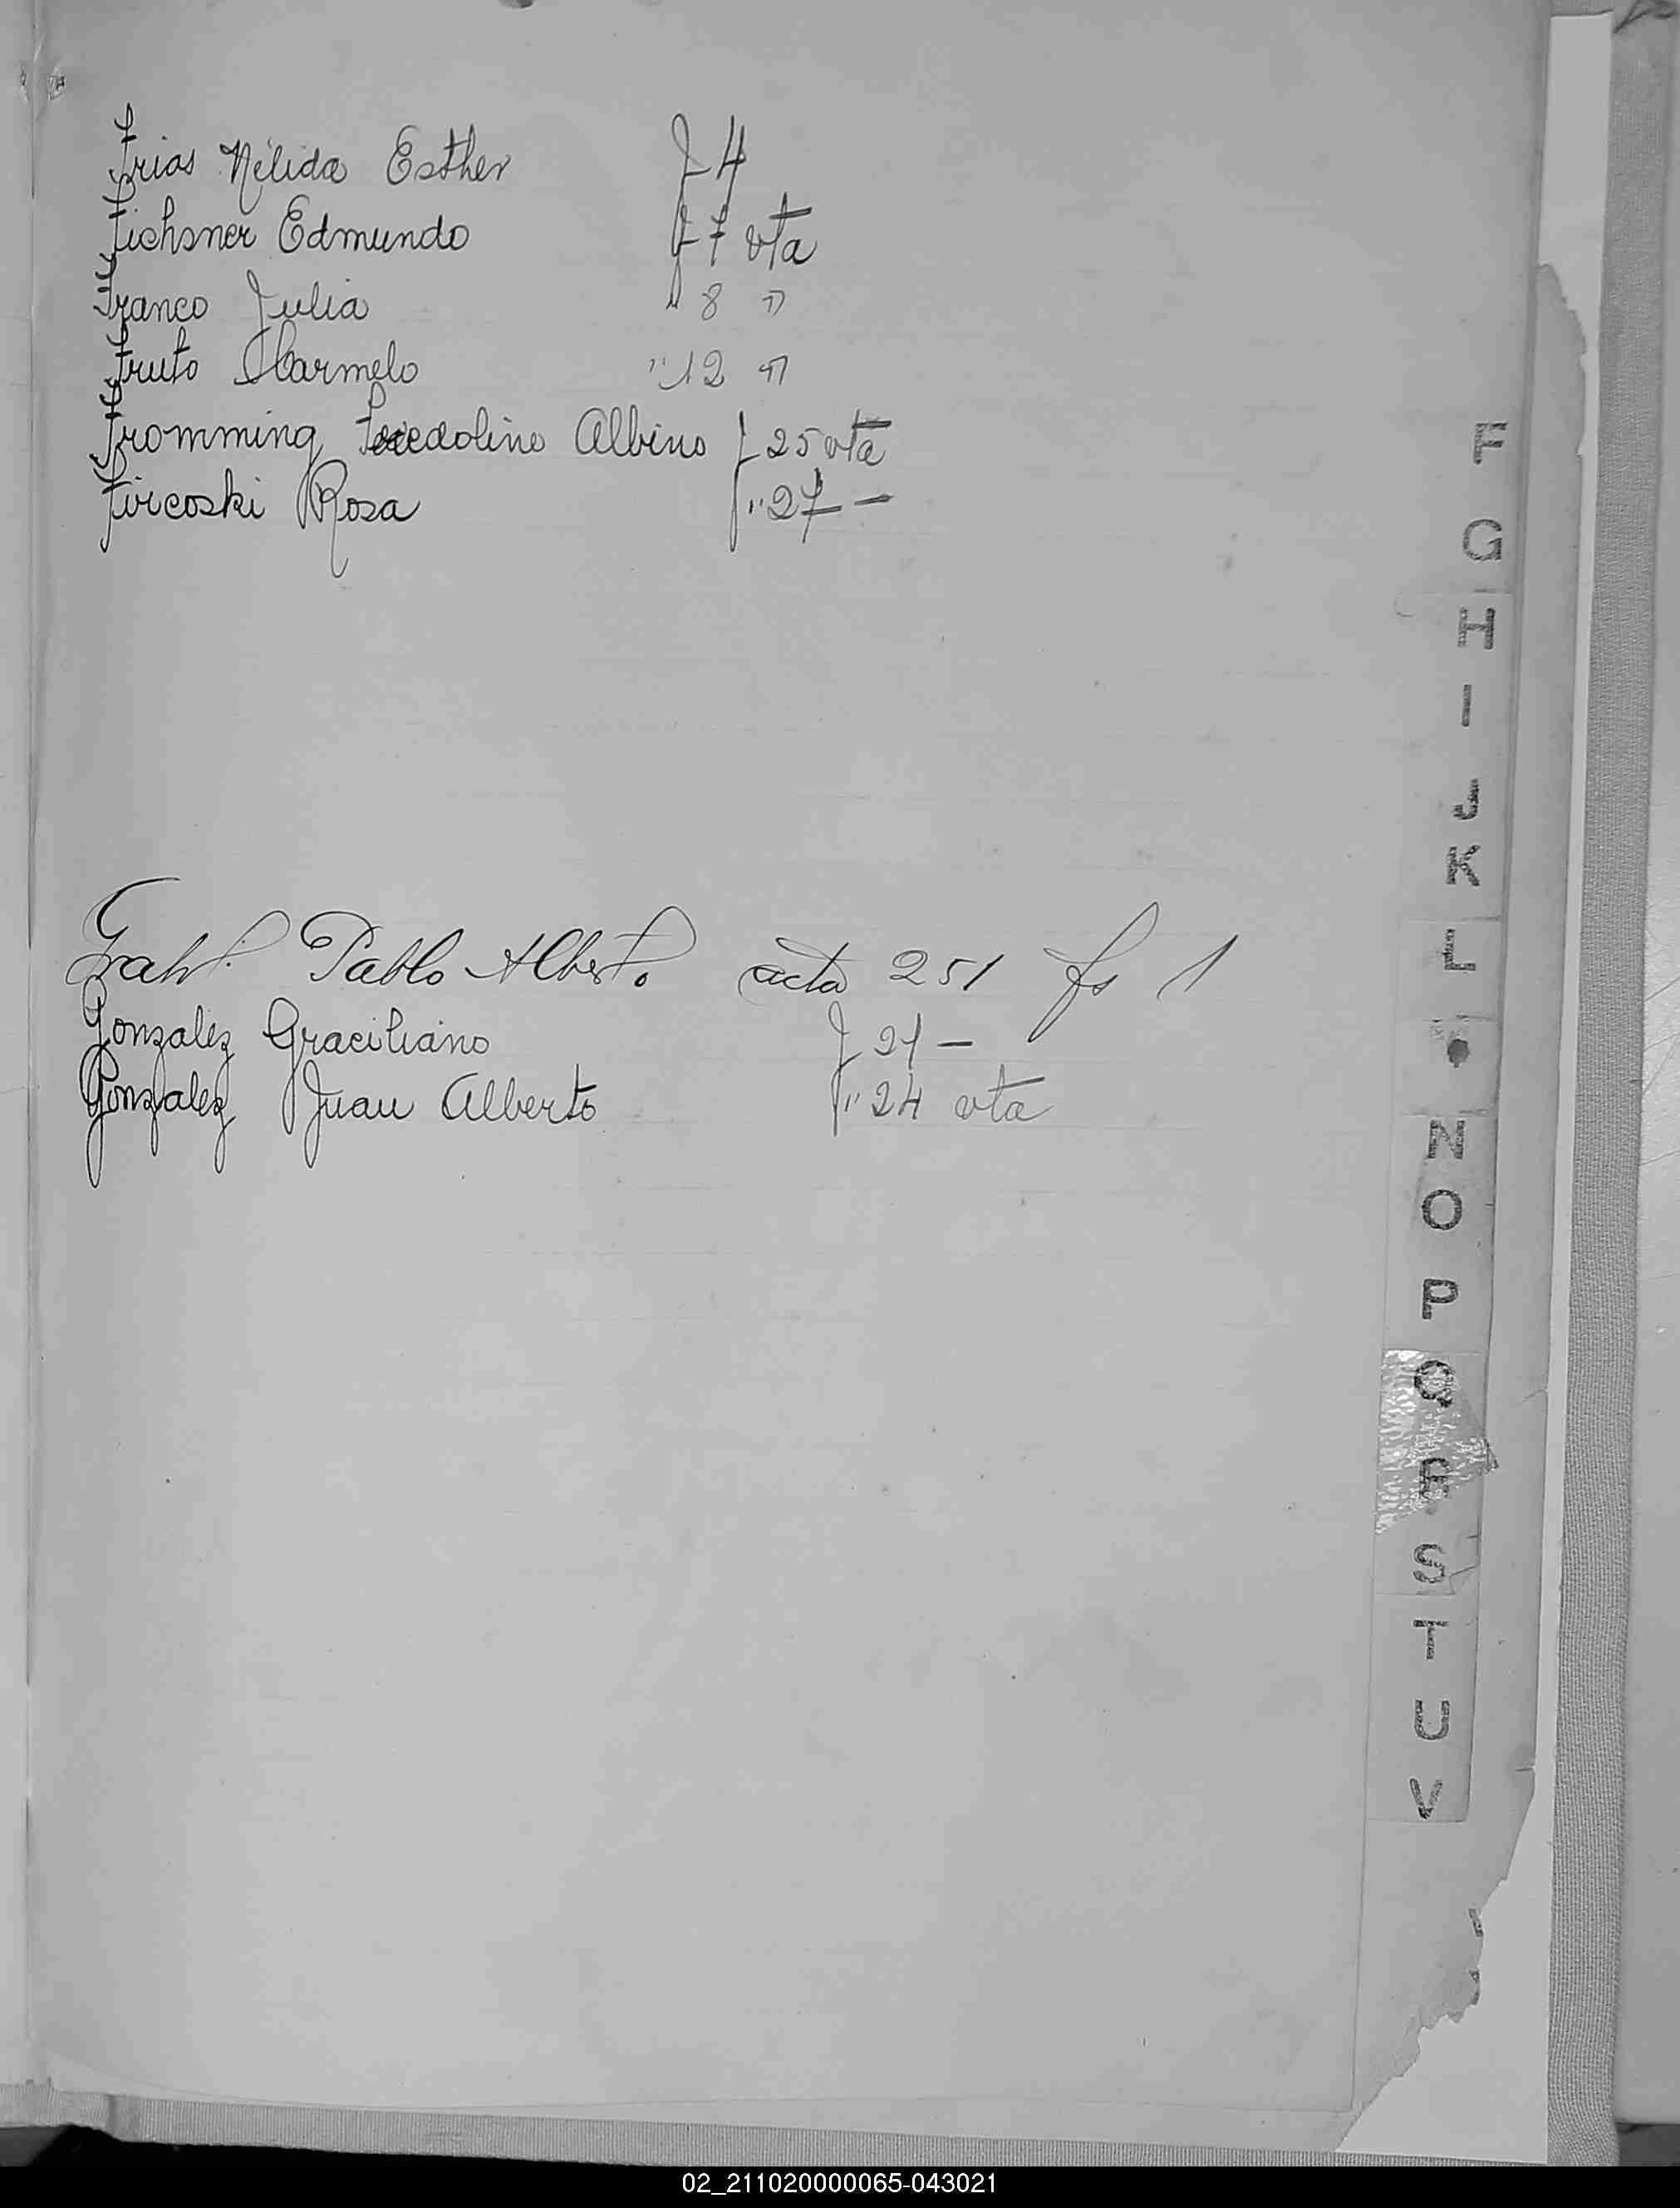 Frias Nélida Esther f 4
Fichsner Edmundo f 7 vta
Franco Julia " 8 "
Fruto Carmelo " 12 "
Fromming Albino f 25 vta
Fircoski Rosa " 27 —
Pablo Alberto acta 251 fs 1
Gonzalez Graciliano f 21 —
Gonzalez Juan Alberto " 24 vta
F
G
H
I
J
K
L
N
O
P
Q
R
S
T
U
V
02_211020000065-043021